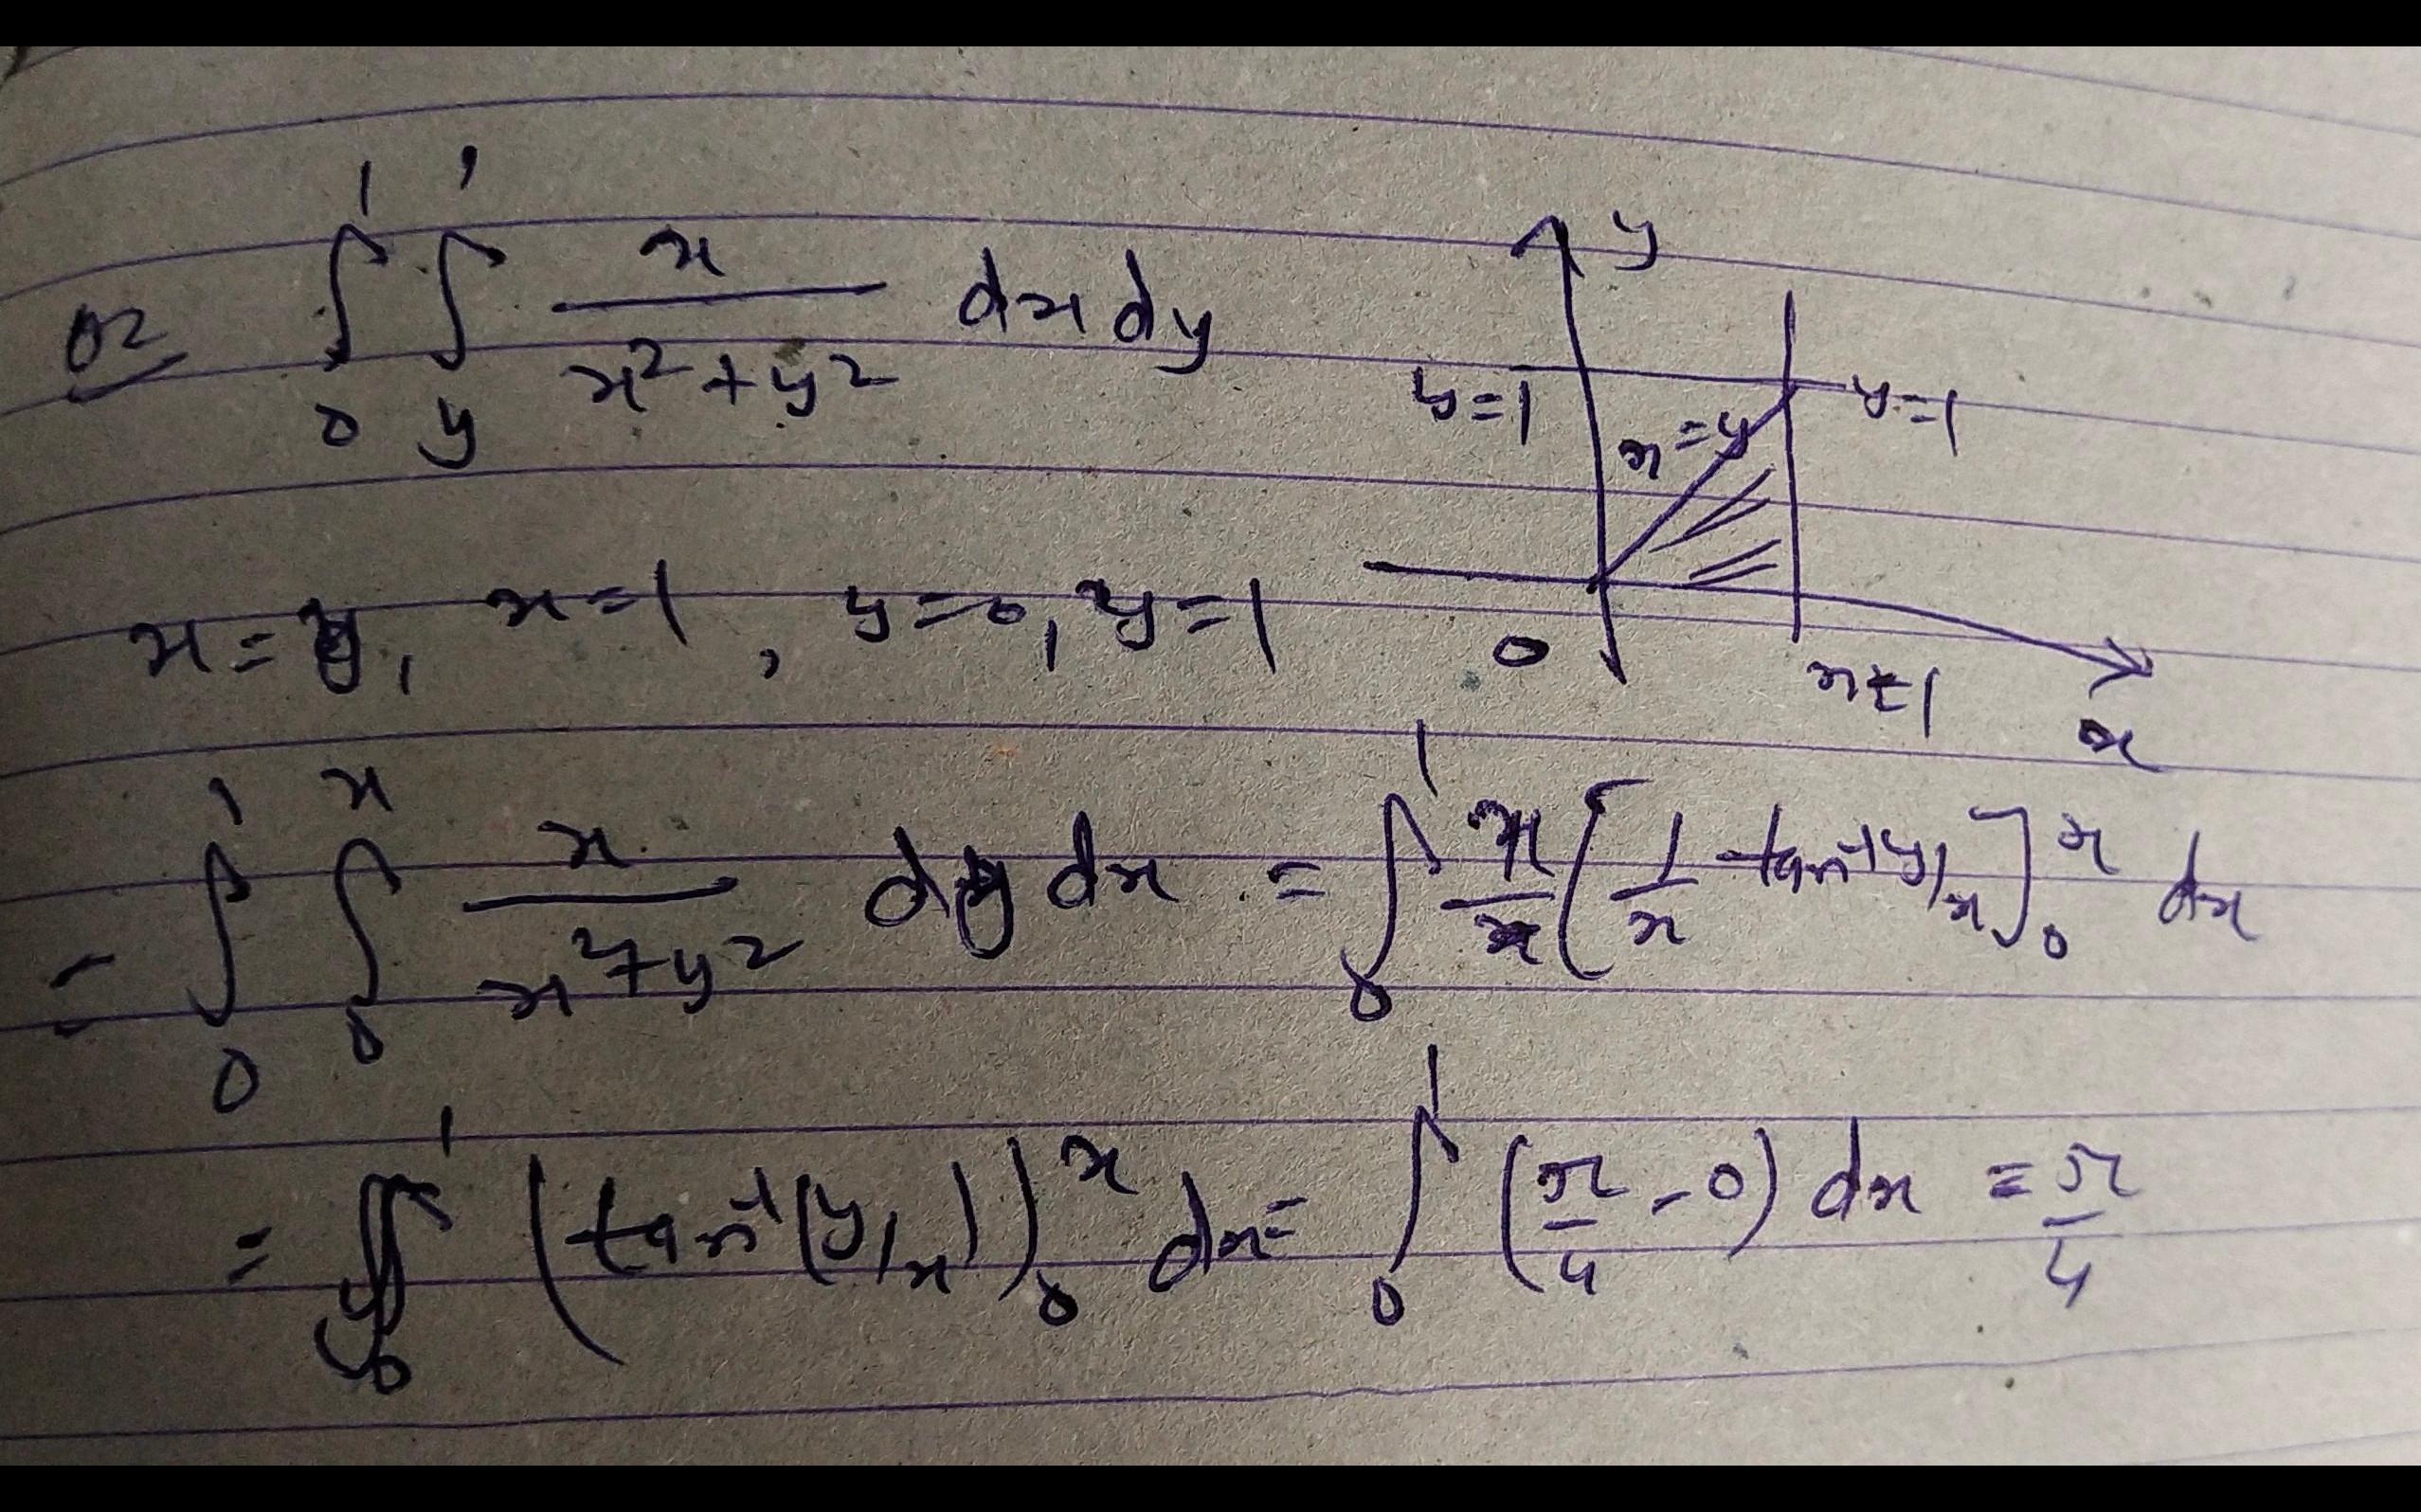 02 ∫₀¹ ∫_y¹ x/(x²+y²) dx dy
y
y=1
x=y
y=1
0
x=1
x
x=y, x=1, y=0, y=1
= ∫₀¹ ∫₀ˣ x/(x²+y²) dy dx = ∫₀¹ x/x [1/x tan⁻¹ y/x]₀ˣ dx
= ∫₀¹ (tan⁻¹(y/x))₀ˣ dx = ∫₀¹ (π/4 - 0) dx = π/4